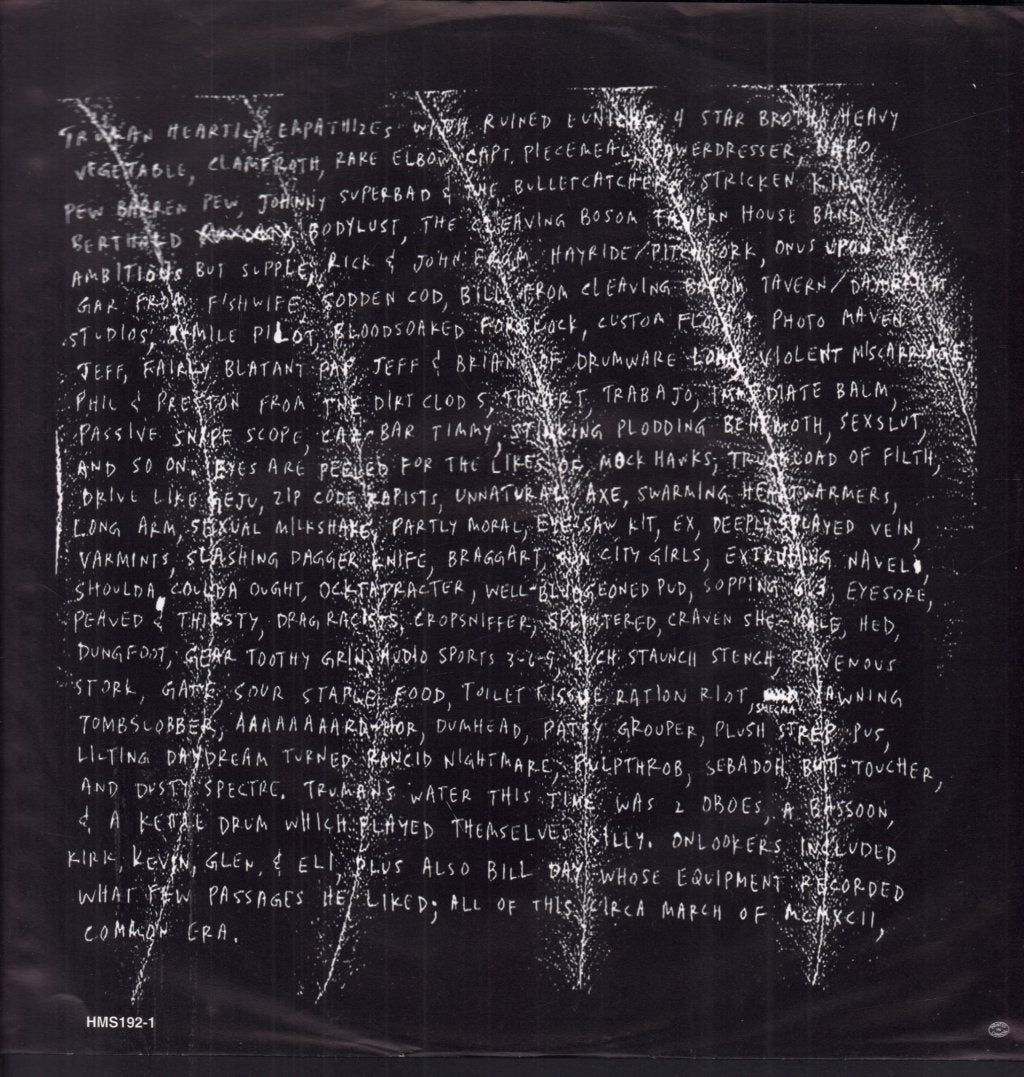 TRUMAN HEARTILY EMPATHIZES WITH RUINED EUNICHS, 4 STAR BROTH, HEAVY
VEGETABLE, CLAMFROTH, RARE ELBOW, CAPT. PIECEMEAL, POWERDRESSER,
PEW BARREN PEW, JOHNNY SUPERBAD & THE BULLETCATCHERS, STRICKEN KING
BERTHALD BODYLUST, THE CLEAVING BOSOM TAVERN HOUSE BAND
AMBITIOUS BUT SUPPLE, RICK & JOHN FROM HAYRIDE/PITCHFORK, ONUS UPON US
GAR FROM FISHWIFE, SODDEN COD, BILL FROM CLEAVING BOSOM TAVERN/
STUDIOS, PILOT, BLOODSOAKED FORELOCK, CUSTOM PHOTO MAVEN
JEFF, FAIRLY BLATANT JEFF & BRIAN OF DRUMWARE VIOLENT MISCARRIAGE
PHIL & PRESTON FROM THE DIRT CLODS, TRABAJO, IMMEDIATE BALM,
PASSIVE SNIPE SCOPE, CAR-BAR TIMMY, STINKING PLODDING BEHEMOTH, SEXSLUT,
AND SO ON. EYES ARE PEELED FOR THE LIKES OF MOCK HAWKS, TRUCKLOAD OF FILTH,
DRIVE LIKE JEJU, ZIP CODE RAPISTS, UNNATURAL AXE, SWARMING HEARTWARMERS,
LONG ARM, SEXUAL MILKSHAKE, PARTLY MORAL, EYE SAW KIT, EX, DEEPLY SPLAYED VEIN,
VARMINTS, SLASHING DAGGER KNIFE, BRAGGART, SUN CITY GIRLS, EXTRUDING NAVEL,
SHOULDA COULDA OUGHT, OCKTADRACTER, WELL-BLUDGEONED PUD, SOPPING EYESORE,
PEAVED & THIRSTY, DRAG RACISTS, CROPSNIFFER, SPLINTERED, CRAVEN SHE-MALE, HED,
DUNGFOOT, GEAR TOOTHY GRIN, AUDIO SPORTS 3-6-9, SUCH STAUNCH STENCH, RAVENOUS
STORK, GATE SOUR STAPLE FOOD, TOILET TISSUE RATION RIOT, YAWNING
TOMBSLOBBER, AAAAAAAARD-HOR, DUMHEAD, PATTY GROUPER, PLUSH STREP PUS,
LILTING DAYDREAM TURNED RANCID NIGHTMARE, PULPTHROB, SEBADOH, BUTT-TOUCHER,
AND DUSTY SPECTRE. TRUMANS WATER THIS TIME WAS 2 OBOES, A BASSOON,
& A KETTLE DRUM WHICH PLAYED THEMSELVES SILLY. ONLOOKERS INCLUDED
KIRK, KEVIN, GLEN, & ELI, PLUS ALSO BILL DAY WHOSE EQUIPMENT RECORDED
WHAT FEW PASSAGES HE LIKED; ALL OF THIS CIRCA MARCH OF MCMXCII,
COMMON ERA.
HMS192-1